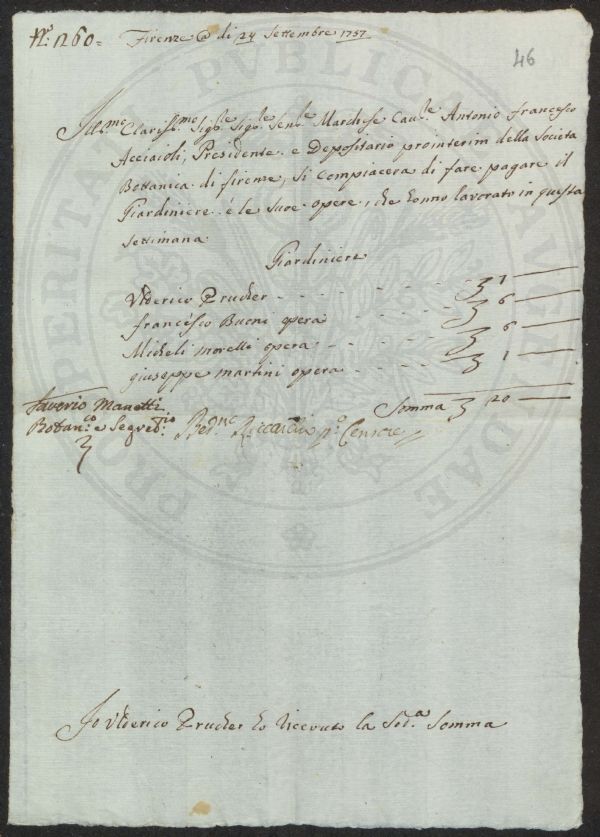 N.º 1260=
Firenze @ di 24 Settembre 1757
46
Ill.mo Clariss.mo Sig.le Sig.le Sen.le Marchese Cav.le Antonio Francesco
Acciaioli, Presidente e Depositario prointerim della Società
Bottanica di firenze, si compiacera di fare pagare il
Giardiniere è le sue opere, che hanno lavorato in questa
settimana
Giardiniere
Ulderico Prucher - - - - - 7 —
francesco Buoni opera - - - - 6 —
Micheli morelli opera - - - - 6 —
giuseppe martini opera - - - - 1 —
Somma 20 —
Saverio Manetti
Bottan.co e Segret.rio
Bed.ne Riccardi P.º Censore
Io Ulderico Prucher ho ricevuto la Sod.a Somma
PROSPERITATI PUBLICAE AUGENDAE